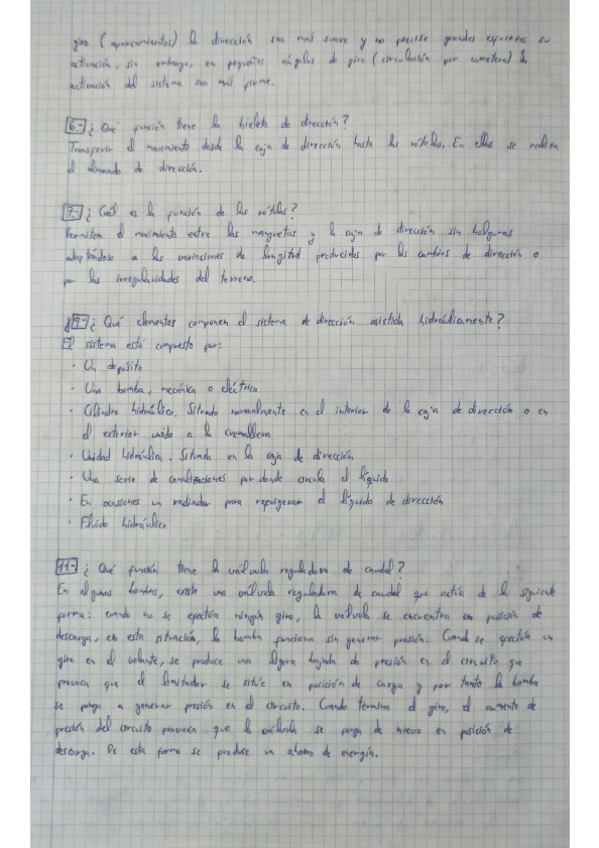 giro (aparcamientos) la dirección sea más suave y no precise grandes esfuerzos su
activación, sin embargo, en pequeños ángulos de giro (circulación por carretera) la
activación del sistema sea más firme.
6.- ¿Qué función tiene la bieleta de dirección?
Transferir el movimiento desde la caja de dirección hasta las rótulas. En ellas se realiza
el alineado de dirección.
7.- ¿Cuál es la función de las rótulas?
Permiten el movimiento entre las manguetas y la caja de dirección sin holguras
adaptándose a las variaciones de longitud producidas por los cambios de dirección o
por las irregularidades del terreno.
9.- ¿Qué elementos componen el sistema de dirección asistida hidráulicamente?
El sistema está compuesto por:
· Un depósito
· Una bomba, mecánica o eléctrica
· Cilindro hidráulico. Situado normalmente en el interior de la caja de dirección o en
el exterior unido a la cremallera
· Unidad hidráulica. Situada en la caja de dirección
· Una serie de canalizaciones por donde circula el líquido
· En ocasiones un radiador para refrigerar el líquido de dirección
· Fluido hidráulico
11.- ¿Qué función tiene la válvula reguladora de caudal?
En algunas bombas, existe una válvula reguladora de caudal que actúa de la siguiente
forma: cuando no se efectúa ningún giro, la válvula se encuentra en posición de
descarga, en esta situación, la bomba funciona sin generar presión. Cuando se efectúa un
giro en el volante, se produce una ligera bajada de presión en el circuito que
provoca que el limitador se sitúe en posición de carga y por tanto la bomba
se ponga a generar presión en el circuito. Cuando termina el giro, el aumento de
presión del circuito provoca que la válvula se ponga de nuevo en posición de
descarga. De esta forma se produce un ahorro de energía.